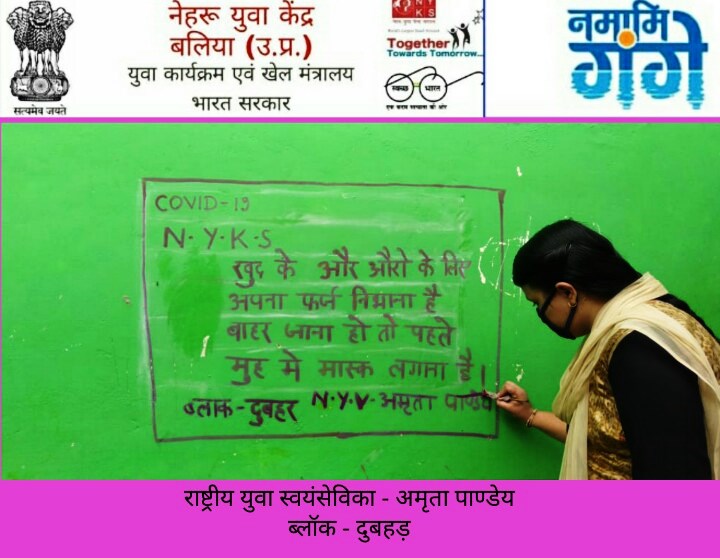 नेहरू युवा केंद्र
बलिया (उ.प्र.)
युवा कार्यक्रम एवं खेल मंत्रालय
भारत सरकार
सत्यमेव जयते
N Y
K S
Together
Towards Tomorrow...
स्वच्छ भारत
एक कदम स्वच्छता की ओर
नमामि
गंगे
COVID-19
N.Y.K.S
खुद के और औरो के लिए
अपना फर्ज निभाना है
बाहर जाना हो तो पहले
मुह मे मास्क लगाना है।
ब्लाक-दुबहर N.Y.V-अमृता पाण्डेय
राष्ट्रीय युवा स्वयंसेविका - अमृता पाण्डेय
ब्लॉक - दुबहड़